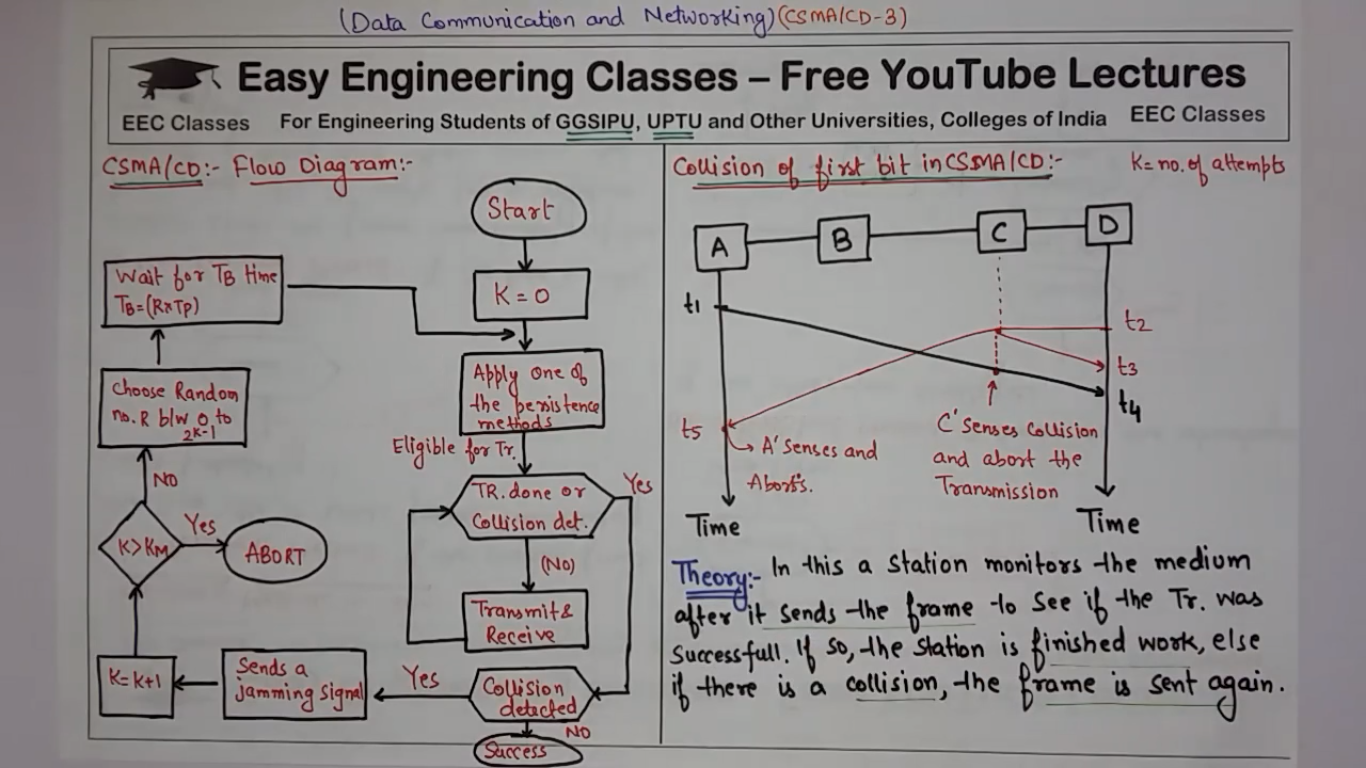 (Data Communication and Networking)(CSMA/CD-3)
Easy Engineering Classes – Free YouTube Lectures
EEC Classes For Engineering Students of GGSIPU, UPTU and Other Universities, Colleges of India EEC Classes
CSMA/CD:- Flow Diagram:-
Start
K = 0
Wait for TB time
TB=(R×Tp)
Apply one of
the persistence
methods
Choose Random
no. R b/w 0 to
2K-1
Eligible for Tr.
TR. done or
Collision det.
Yes
NO
(NO)
K>KM
Yes
ABORT
Transmit &
Receive
K=K+1
Sends a
jamming signal
Yes
Collision
detected
NO
Success
Collision of first bit in CSMA/CD:- K= no. of attempts
A
B
C
D
t1
t2
t3
t4
t5
A' Senses and
Aborts.
C' Senses Collision
and abort the
Transmission
Time
Time
Theory:- In this a Station monitors the medium
after it sends the frame to see if the Tr. was
Successfull. If so, the station is finished work, else
if there is a collision, the frame is sent again.